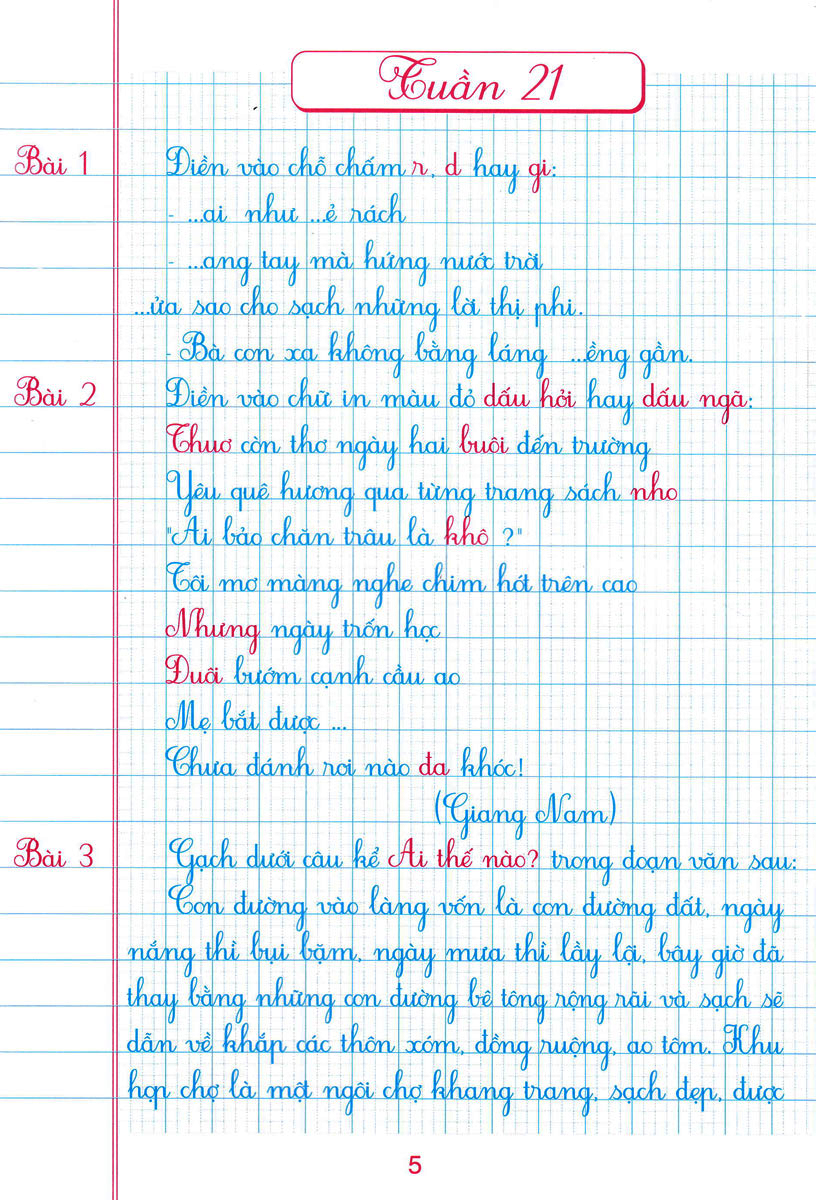 Tuần 21
Bài 1 Điền vào chỗ chấm r, d hay gi:
- ...ai như ...ẻ rách
- ...ang tay mà hứng nước trời
...ửa sao cho sạch những lời thị phi.
- Bà con xa không bằng láng ...ềng gần.
Bài 2 Điền vào chữ in màu đỏ dấu hỏi hay dấu ngã:
Thuơ còn thơ ngày hai buôi đến trường
Yêu quê hương qua từng trang sách nho
"Ai bảo chăn trâu là khô ?"
Tôi mơ màng nghe chim hót trên cao
Nhưng ngày trốn học
Đuôi bướm cạnh cầu ao
Mẹ bắt được ...
Chưa đánh roi nào đa khóc!
(Giang Nam)
Bài 3 Gạch dưới câu kể Ai thế nào? trong đoạn văn sau:
Con đường vào làng vốn là con đường đất, ngày
nắng thì bụi bặm, ngày mưa thì lầy lội, bây giờ đã
thay bằng những con đường bê tông rộng rãi và sạch sẽ
dẫn về khắp các thôn xóm, đồng ruộng, ao tôm. Khu
họp chợ là một ngôi chợ khang trang, sạch đẹp, được
5